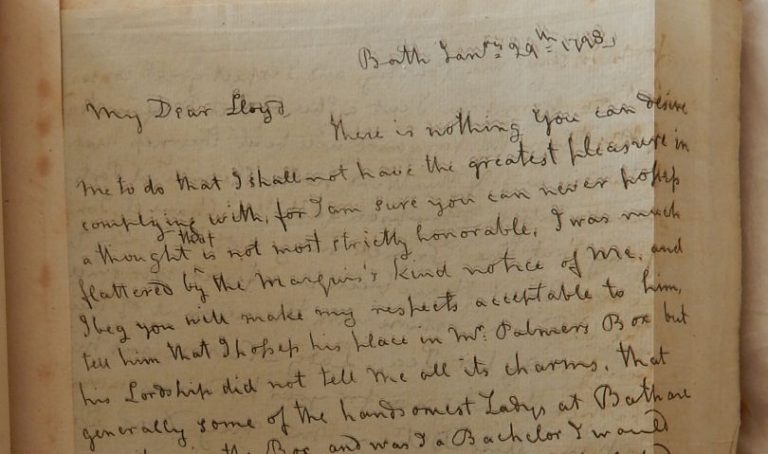 Bath Jan.ry 29th 1798
My Dear Lloyd
There is nothing You can desire
me to do that I shall not have the greatest pleasure in
complying with, for I am sure you can never possess
a thought that is not most strictly honorable. I was much
flattered by the Marquis's kind notice of me, and
I beg you will make my respects acceptable to him,
tell him that I possess his place in Mr. Palmers Box but
his Lordship did not tell me all its charms, that
generally some of the handsomest Ladys at Bath are
in the Box, and was I a Bachelor I would